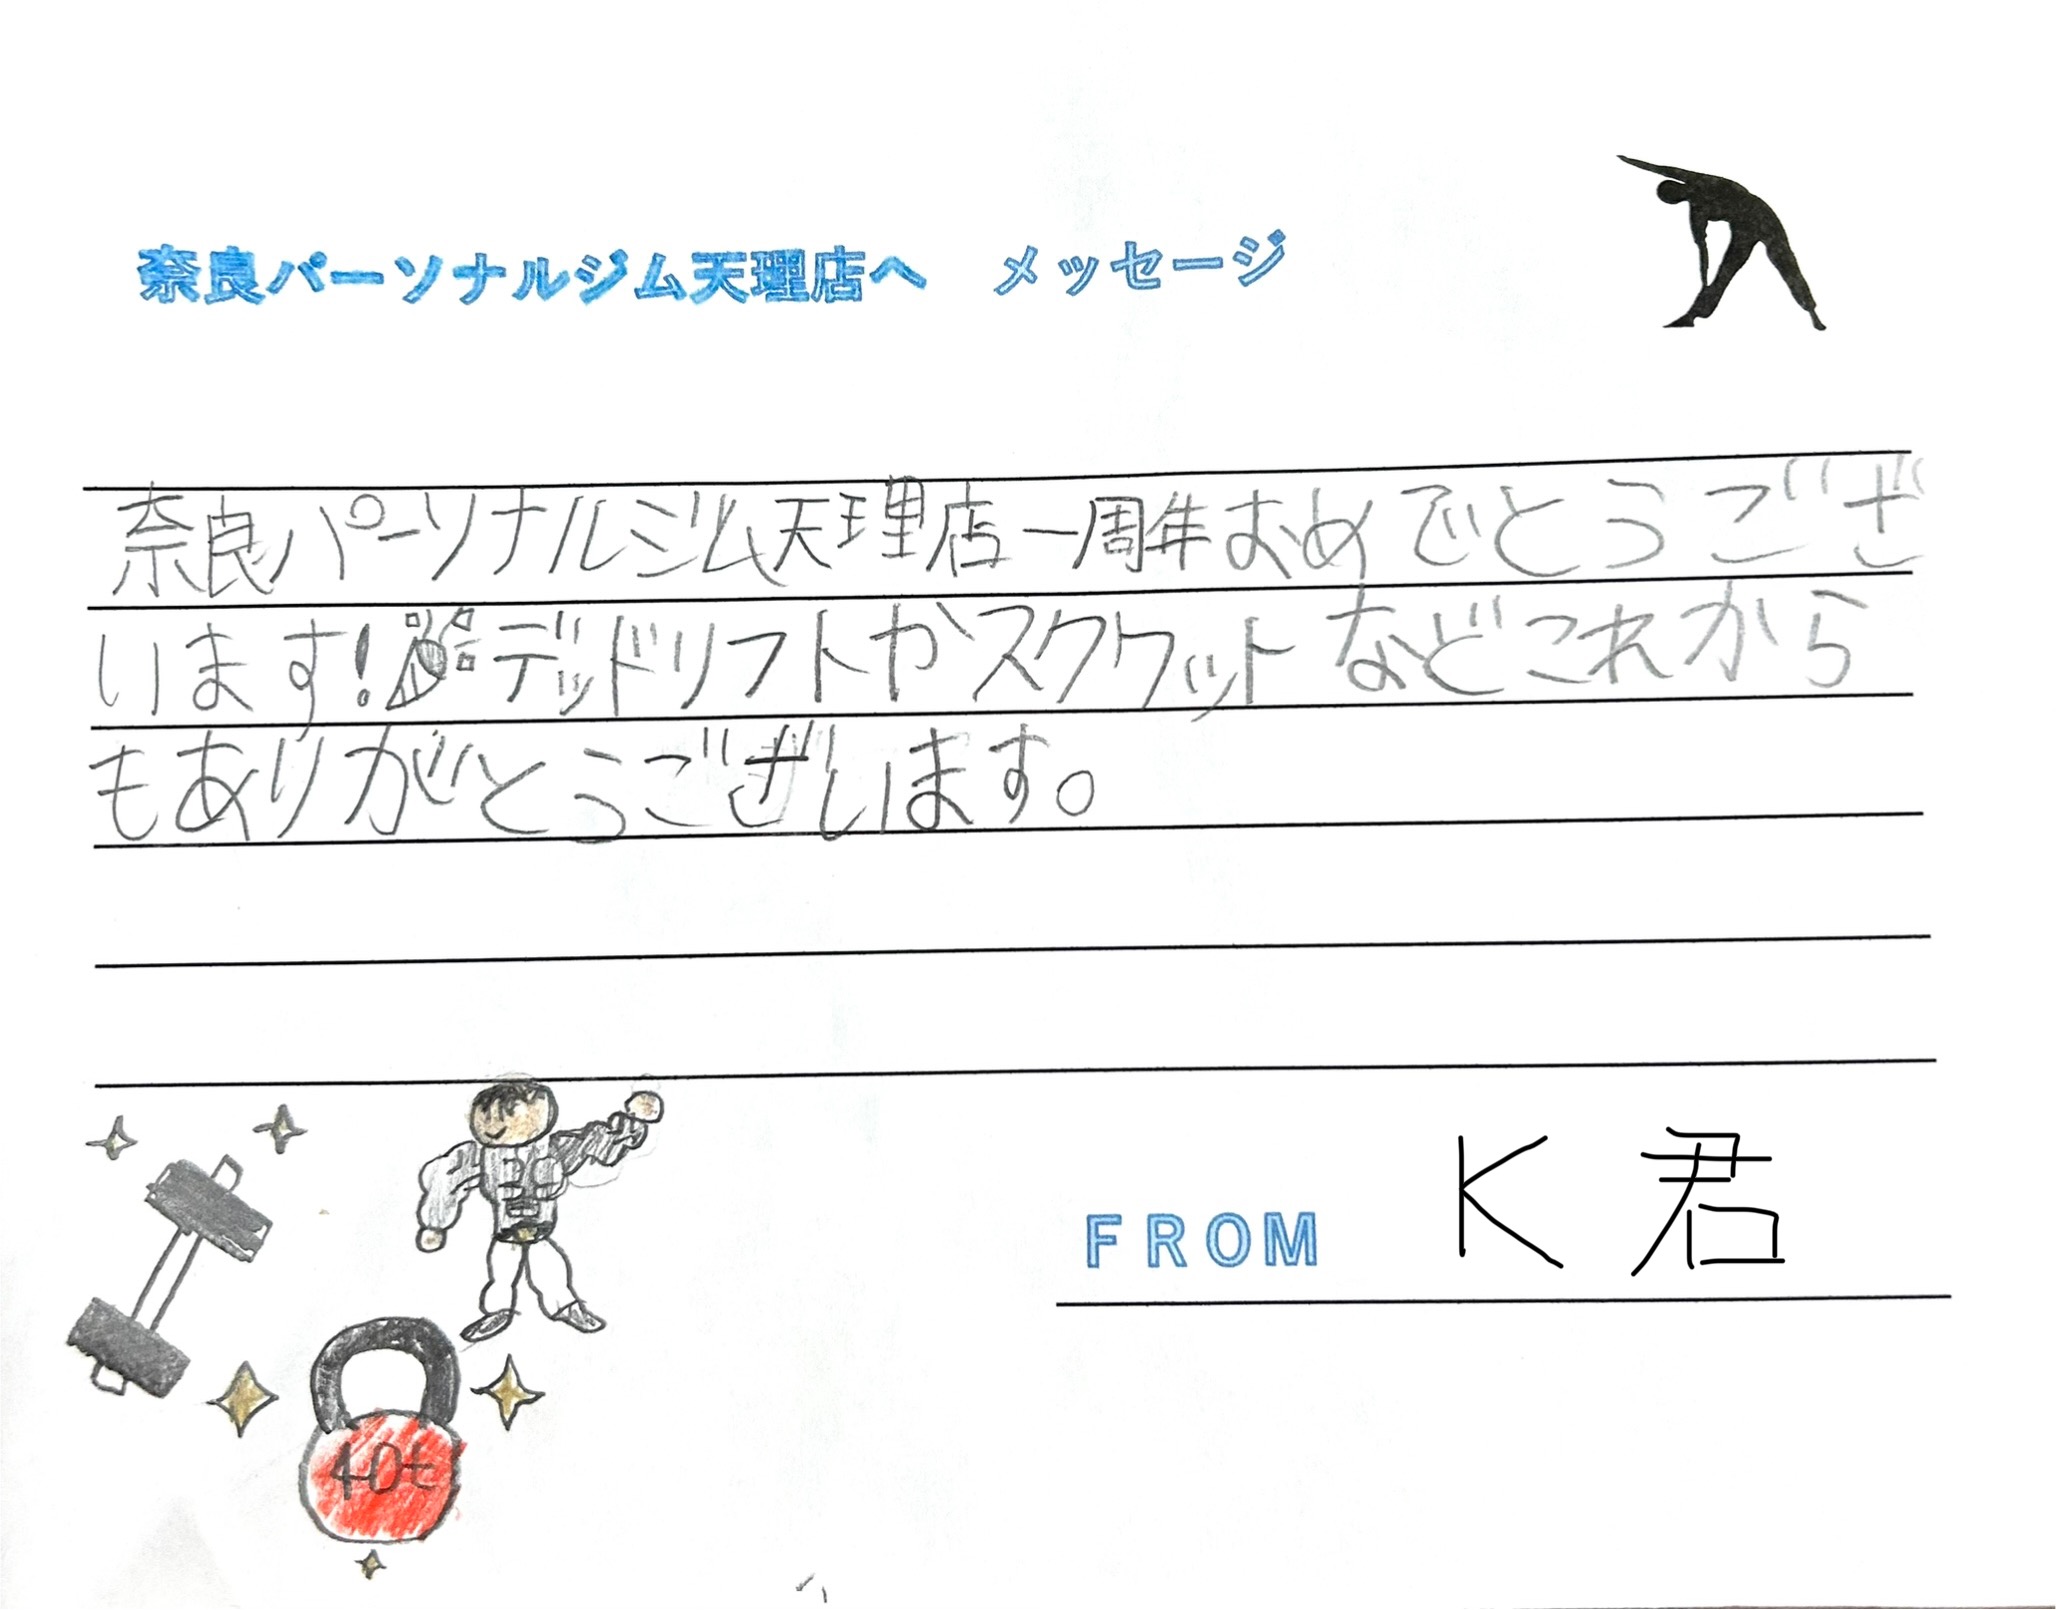 奈良パーソナルジム天理店へ　メッセージ
奈良パーソナルジム天理店一周年おめでとうござ
います！🎉デッドリフトやスクワットなどこれから
もありがとうございます。
FROM　K君
40t